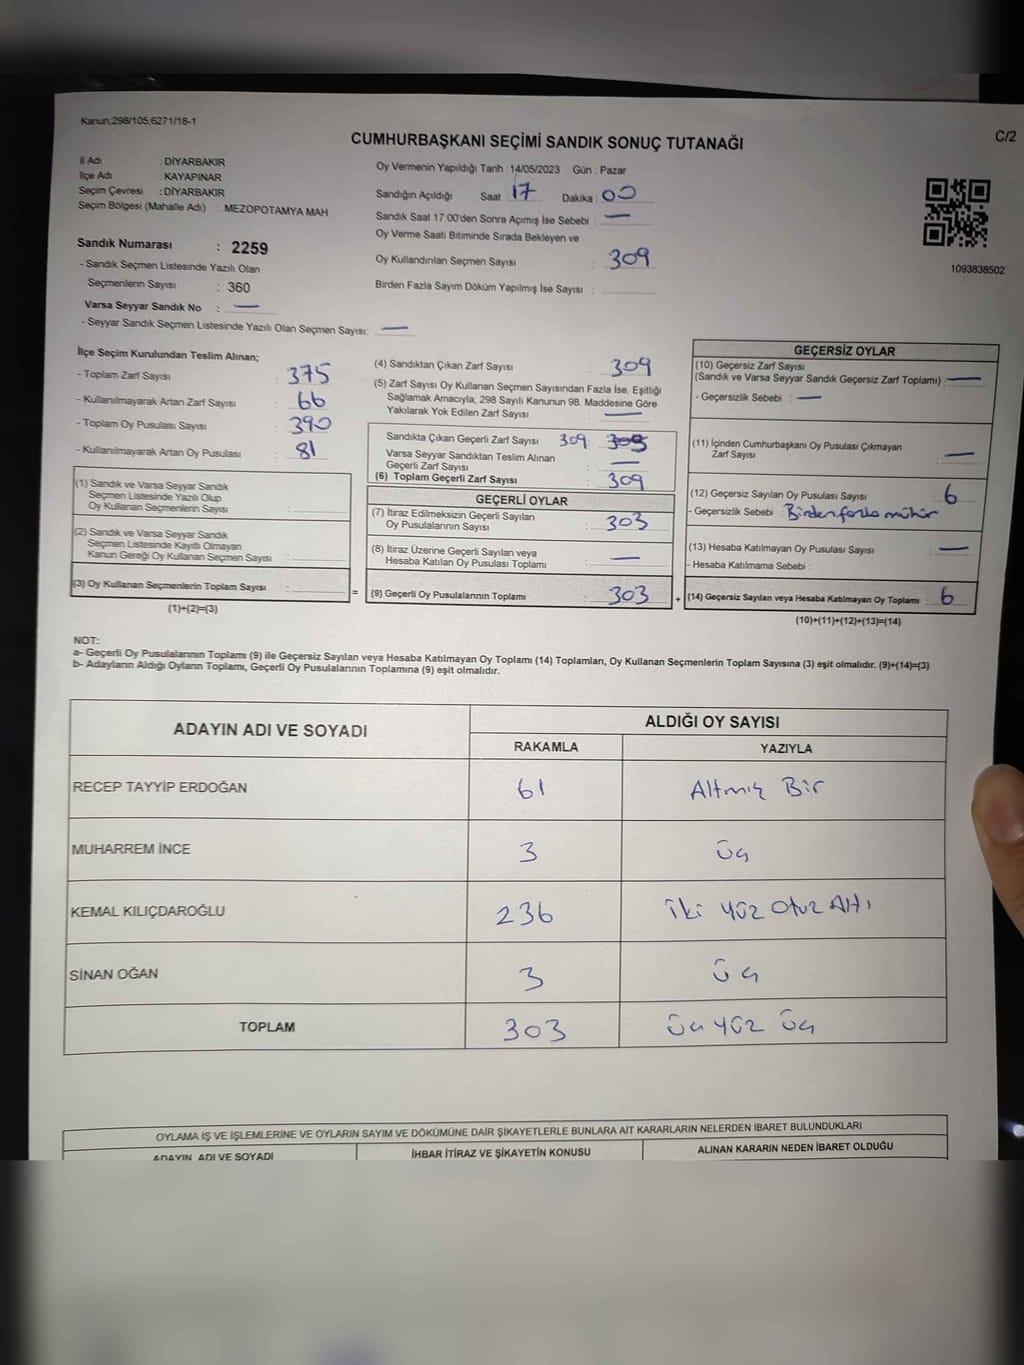 Kanun;298/105,6271/18-1
C/2
CUMHURBAŞKANI SEÇİMİ SANDIK SONUÇ TUTANAĞI
İl Adı : DİYARBAKIR
İlçe Adı : KAYAPINAR
Seçim Çevresi : DİYARBAKIR
Seçim Bölgesi (Mahalle Adı) : MEZOPOTAMYA MAH.
Sandık Numarası : 2259
- Sandık Seçmen Listesinde Yazılı Olan
Seçmenlerin Sayısı : 360
Varsa Seyyar Sandık No : —
- Seyyar Sandık Seçmen Listesinde Yazılı Olan Seçmen Sayısı: —
Oy Vermenin Yapıldığı Tarih : 14/05/2023 Gün : Pazar
Sandığın Açıldığı Saat 17 Dakika : 00
Sandık Saat 17:00'den Sonra Açımış İse Sebebi : —
Oy Verme Saati Bitiminde Sırada Bekleyen ve
Oy Kullandırılan Seçmen Sayısı : 309
Birden Fazla Sayım Döküm Yapılmış İse Sayısı :
1093838502
İlçe Seçim Kurulundan Teslim Alınan;
- Toplam Zarf Sayısı : 375
- Kullanılmayarak Artan Zarf Sayısı : 66
- Toplam Oy Pusulası Sayısı : 390
- Kullanılmayarak Artan Oy Pusulası : 81
(1) Sandık ve Varsa Seyyar Sandık
Seçmen Listesinde Yazılı Olup
Oy Kullanan Seçmenlerin Sayısı :
(2) Sandık ve Varsa Seyyar Sandık
Seçmen Listesinde Kayıtlı Olmayan
Kanun Gereği Oy Kullanan Seçmen Sayısı :
(3) Oy Kullanan Seçmenlerin Toplam Sayısı :
(1)+(2)=(3)
=
(4) Sandıktan Çıkan Zarf Sayısı : 309
(5) Zarf Sayısı Oy Kullanan Seçmen Sayısından Fazla İse, Eşitliği
Sağlamak Amacıyla, 298 Sayılı Kanunun 98. Maddesine Göre
Yakılarak Yok Edilen Zarf Sayısı : —
Sandıkta Çıkan Geçerli Zarf Sayısı 309
Varsa Seyyar Sandıktan Teslim Alınan
Geçerli Zarf Sayısı : —
(6) Toplam Geçerli Zarf Sayısı : 309
GEÇERLİ OYLAR
(7) İtiraz Edilmeksizin Geçerli Sayılan
Oy Pusulalarının Sayısı : 303
(8) İtiraz Üzerine Geçerli Sayılan veya
Hesaba Katılan Oy Pusulası Toplamı : —
(9) Geçerli Oy Pusulalarının Toplamı : 303
+
GEÇERSİZ OYLAR
(10) Geçersiz Zarf Sayısı
(Sandık ve Varsa Seyyar Sandık Geçersiz Zarf Toplamı) : —
- Geçersizlik Sebebi : —
(11) İçinden Cumhurbaşkanı Oy Pusulası Çıkmayan
Zarf Sayısı : —
(12) Geçersiz Sayılan Oy Pusulası Sayısı : 6
- Geçersizlik Sebebi : Birden fazla mühür
(13) Hesaba Katılmayan Oy Pusulası Sayısı : —
- Hesaba Katılmama Sebebi :
(14) Geçersiz Sayılan veya Hesaba Katılmayan Oy Toplamı : 6
(10)+(11)+(12)+(13)=(14)
NOT:
a- Geçerli Oy Pusulalarının Toplamı (9) ile Geçersiz Sayılan veya Hesaba Katılmayan Oy Toplamı (14) Toplamları, Oy Kullanan Seçmenlerin Toplam Sayısına (3) eşit olmalıdır. (9)+(14)=(3)
b- Adayların Aldığı Oyların Toplamı, Geçerli Oy Pusulalarının Toplamına (9) eşit olmalıdır.
ADAYIN ADI VE SOYADI
ALDIĞI OY SAYISI
RAKAMLA YAZIYLA
RECEP TAYYİP ERDOĞAN 61 Altmış Bir
MUHARREM İNCE 3 üç
KEMAL KILIÇDAROĞLU 236 iki yüz Otuz Altı
SİNAN OĞAN 3 üç
TOPLAM 303 üç yüz üç
OYLAMA İŞ VE İŞLEMLERİNE VE OYLARIN SAYIM VE DÖKÜMÜNE DAİR ŞİKAYETLERLE BUNLARA AİT KARARLARIN NELERDEN İBARET BULUNDUKLARI
ADAYIN ADI VE SOYADI İHBAR İTİRAZ VE ŞİKAYETİN KONUSU ALINAN KARARIN NEDEN İBARET OLDUĞU